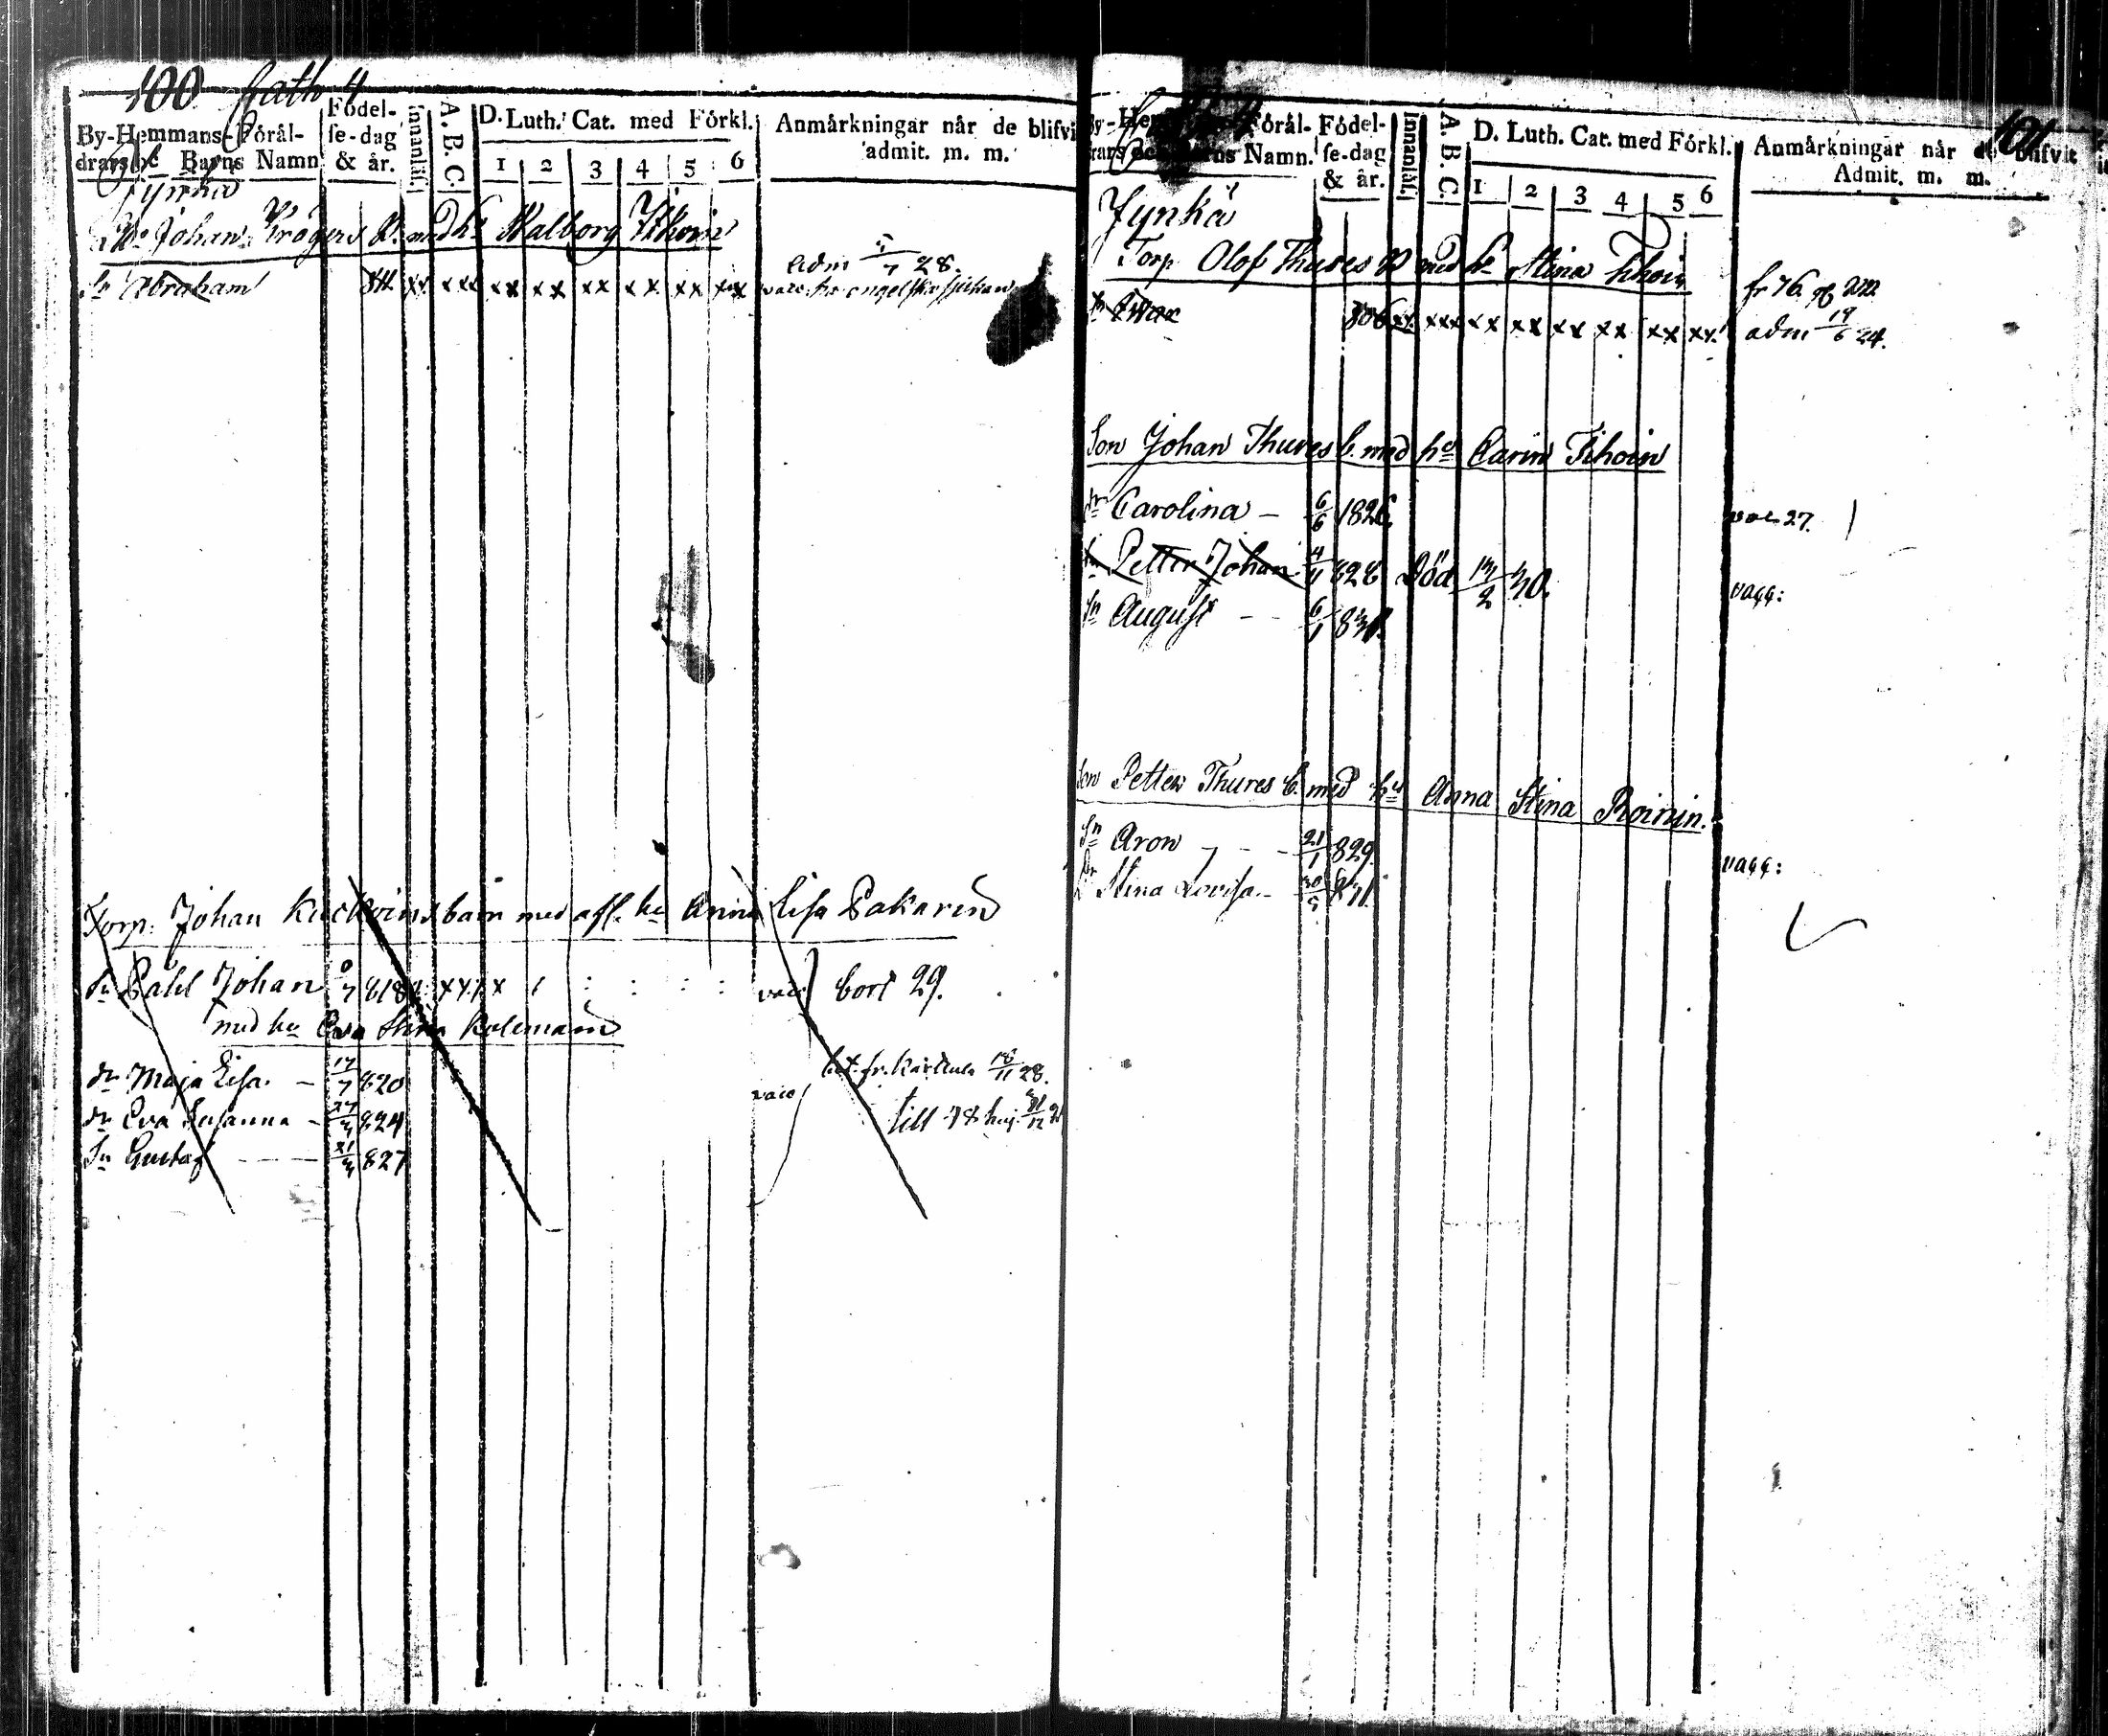 100
By-Hemmans-Förål-
drars oc Barns Namn
Födel-
se-dag
& år.
Innanläs.
A. B. C.
D. Luth. Cat. med Förkl.
1 2 3 4 5 6
Anmärkningar når de blifvi
admit. m. m.
Jynkä
Johan Krögers B. med h. Walborg Tihoin
Sn Abraham 811 xx xxx xx xx xx xx xx xxx
adm 5/7 28.
Torp. Johan Kuckoins barn med afl. hu Anna Lisa Pakarin
Sn Påhl Johan 818 bort 29.
med hu Eva Stina
dr Maja Lisa. – 17/7 820
dr Eva Susanna – 824
Sn Gustaf – – – 827
18/11 28.
till 78 huj.
101
By-Hem Förål-
rars och Barns Namn.
Födel-
se-dag
& år.
Innanläs.
A. B. C.
D. Luth. Cat. med Förkl.
1 2 3 4 5 6
Anmärkningar når de blifvit
Admit. m. m.
Jynkä
Torp Olof Thures B med h. Stina Tihoin
fr 76.
Sn Iwar 806 xx xxx xx xx xx xx xx xx
adm 19/6 24.
Son Johan Thures b. med hu Carin Tihoin
dr Carolina – 6/6 1826. vac 27.
Sn Petter Johan 4/11 828 Död 13/2 30.
Sn August – – 6/1 831. vacc:
Son Petter Thures b. med hu Anna Stina Roinin.
Sn Aron – – – 21/1 829. vacc:
Dr Stina Lovisa. – 30/9 831.